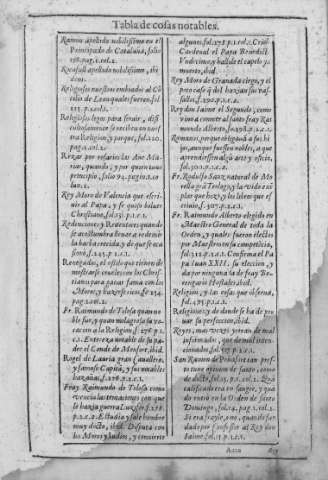 Tabla de cosas notables.
Ramon apellido nobilissimo en el
Principado de Cataluña, folio
pag.1.col.2.
Rocafull apellido nobilissimo, ibi
dem.
Religiosos nuestros embiados al Cō
cilio de Leon quales fueron, fol.
p.1.col.2.
Religiosos legos para seruir, difi
cultosamente se reciben en nues
tra Religion, y porque, fol.
pag.1.col.2.
Rezar por relacion las Aue Ma
rias, quando, y por quien tuuo
principio, folio 94. pagin.1.co
lun.2.
Rey Moro de Valencia que escri
uio al Papa, y se quiso boluer
Christiano, fol.131. p.1.c.1.
Redenciones y Redentores quando
se acostumbra lleuar a redencion
la barba crecida, y de que se oca
sionò, fol.243. p.1.c.1.
Renegados, el estilo que tienen de
mostrarse crueles con los Chris-
tianos para ganar fama con los
Moros, y hazerse ricos, fol.254.
pag.2.col.2.
Fr. Raimundo de Tolosa quan no
ble fue, y quan milagrosa su vo
cacion a la Religion, f. 276. p.
1.c.1. Entereza notable de su pa
dre el Conde de Monfort, ibid.
Rogel de Lauria gran Cauallero,
y famoso Capitã, y sus notables
hazañas, f.278. p.2.c.1.
Fray Raimundo de Tolosa como
vencia las tentaciones con que
le hazia guerra Luzifer, f.278.
p.2.c.2. Estudia y sale hombre
muy docto, ibid. Disputa con
los Moros y Iudios, y conuierte
algunos, fol.278. p.1.col.2. Criò
Cardenal el Papa Benedict
Vndecimo, y hasta le el capelo y
muerto, ibid.
Rey Moro de Granada ciego, y el
poco caso que del hazian sus vas
sallos, f.290. p.2.c.1.
Rey don Iaime el Segundo, como
vino a conocer al santo fray Rai
mundo Alberto, fol.298. p.2.c.1.
Romanos, porque obligauan a sus hi
jos, aunque fuessen nobles, a que
aprendiessen algũ arte y oficio,
fol.301. p.2.c.1.
Fr. Rodulfo Sanz natural de Mo
rella grã Teologo, y la vida exẽ
plar que hizo, y los libros que es
criuio, f.307. p.2.c.1.
Fr. Raimundo Alberto elegido en
Maestro General de toda la
Orden, y quales fueron electos
por Maestros en su competencia,
fol.312. p.1.c.1. Confirma el Pa
pa Iuan XXII. su eleccion, y
da por ninguna la de fray Be-
renguer Hostales. ibid.
Religion, y las cosas que obserua,
fol.473. p.1.c.1.
Religiosos, y de donde se ha de pro
uar su profession, ibid.
Reyes, mas vezes yerran de mal
informados, que de mal inten-
cionados, fol.477. p.1.c.1.
San Ramon de Peñafort tan pres
to tuuo opinion de santo, como
de docto, fol.13. p.1. col.2. Que
calidad era en sangre, y qua
do entrò en la Orden de Santo
Domingo, fol.14. pag.1. col.2.
Si era frayle, ono, quando fue
dado por Confessor al Rey don
Iaime, fol.15. p.1.c.1.
Aaaa